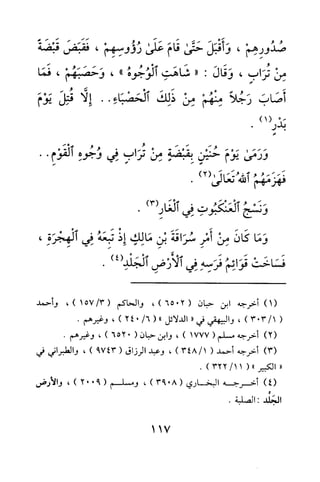 صُدُورِهِمْ ، وَأَقْبَلَ حَتَّىٰ قَامَ عَلَىٰ رُؤُوسِهِمْ ، فَقَبَضَ قَبْضَةً
مِنْ تُرَابٍ ، وَقَالَ : « شَاهَتِ ٱلْوُجُوهُ » ، وَحَصَبَهُمْ ، فَمَا
أَصَابَ رَجُلاً مِنْهُمْ مِنْ ذَلِكَ ٱلْحَصْبَاءِ . . إِلَّا قُتِلَ يَوْمَ
بَدْرٍ (١) .
وَرَمَىٰ يَوْمَ حُنَيْنٍ بِقَبْضَةٍ مِنْ تُرَابٍ فِي وُجُوهِ ٱلْقَوْمِ . .
فَهَزَمَهُمُ ٱللهُ تَعَالَىٰ (٢) .
وَنَسْجُ ٱلْعَنْكَبُوتِ فِي ٱلْغَارِ (٣) .
وَمَا كَانَ مِنْ أَمْرِ سُرَاقَةَ بْنِ مَالِكٍ إِذْ تَبِعَهُ فِي ٱلْهِجْرَةِ ،
فَسَاخَتْ قَوَائِمُ فَرَسِهِ فِي ٱلْأَرْضِ ٱلْجَلْدِ (٤) .
(١) أخرجه ابن حبان ( ٦٥٠٢ ) ، والحاكم ( ١٥٧/٣ ) ، وأحمد
( ٣٠٣/١ ) ، والبيهقي في « الدلائل » ( ٢٤٠/٦ ) ، وغيرهم .
(٢) أخرجه مسلم ( ١٧٧٧ ) ، وابن حبان ( ٦٥٢٠ ) ، وغيرهم .
(٣) أخرجه أحمد ( ٣٤٨/١ ) ، وعبد الرزاق ( ٩٧٤٣ ) ، والطبراني في
« الكبير » ( ٣٢٢/١١ ) .
(٤) أخرجه البخاري ( ٣٩٠٨ ) ، ومسلم ( ٢٠٠٩ ) ، والأرض
الجَلْد : الصلبة .
١١٧